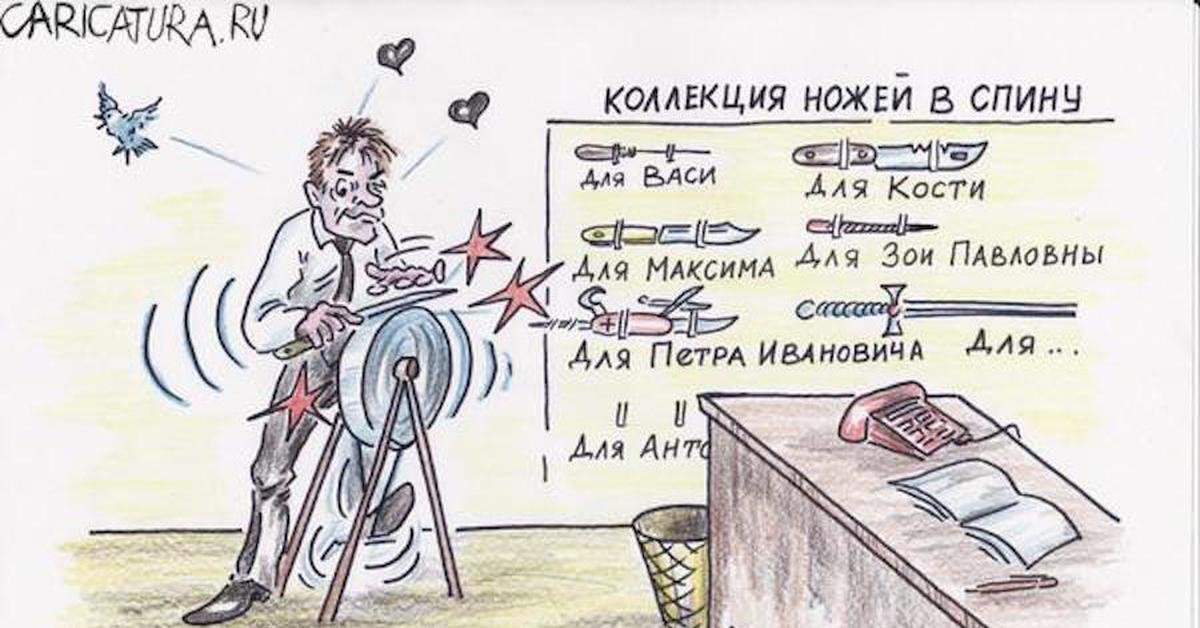 CARICATURA.RU
КОЛЛЕКЦИЯ НОЖЕЙ В СПИНУ
Для ВАСИ
Для КОСТИ
Для МАКСИМА
Для ЗОИ ПАВЛОВНЫ
Для ПЕТРА ИВАНОВИЧА
Для ...
Для АНТО